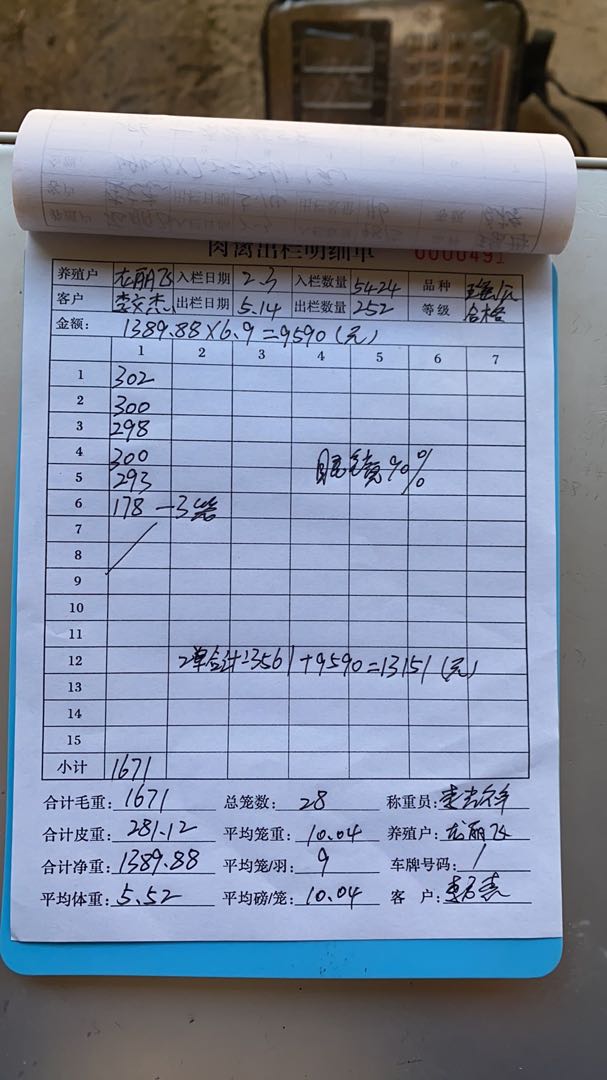 肉禽出栏明细单 0000491
养殖户 龙丽飞 入栏日期 2.3 入栏数量 5424 品种
客户 李文杰 出栏日期 5.14 出栏数量 252 等级 合格
金额: 1389.88×6.9=9590(元)
1 2 3 4 5 6 7
1 302
2 300
3 298
4 300
5 293
6 178 —3笼
7
8
9
10
11
12 2单合计=3561+9590=13151(元)
13
14
15
小计 1671
合计毛重: 1671 总笼数: 28 称重员:
合计皮重: 281.12 平均笼重: 10.04 养殖户: 龙丽飞
合计净重: 1389.88 平均笼/羽: 9 车牌号码: /
平均体重: 5.52 平均磅/笼: 10.04 客 户: